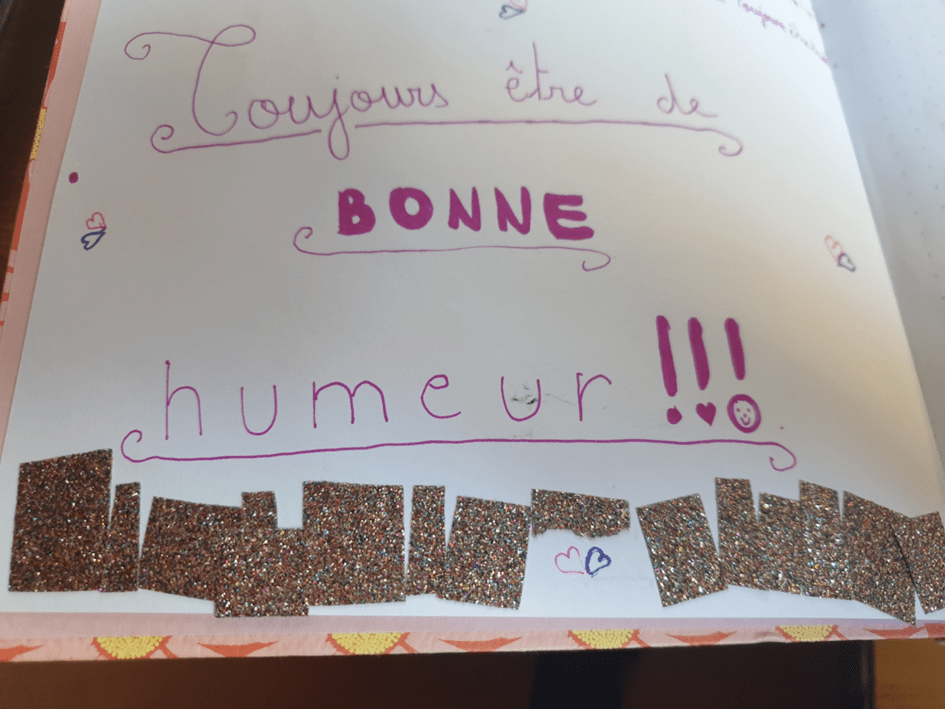 Toujours être de
BONNE
humeur !!!